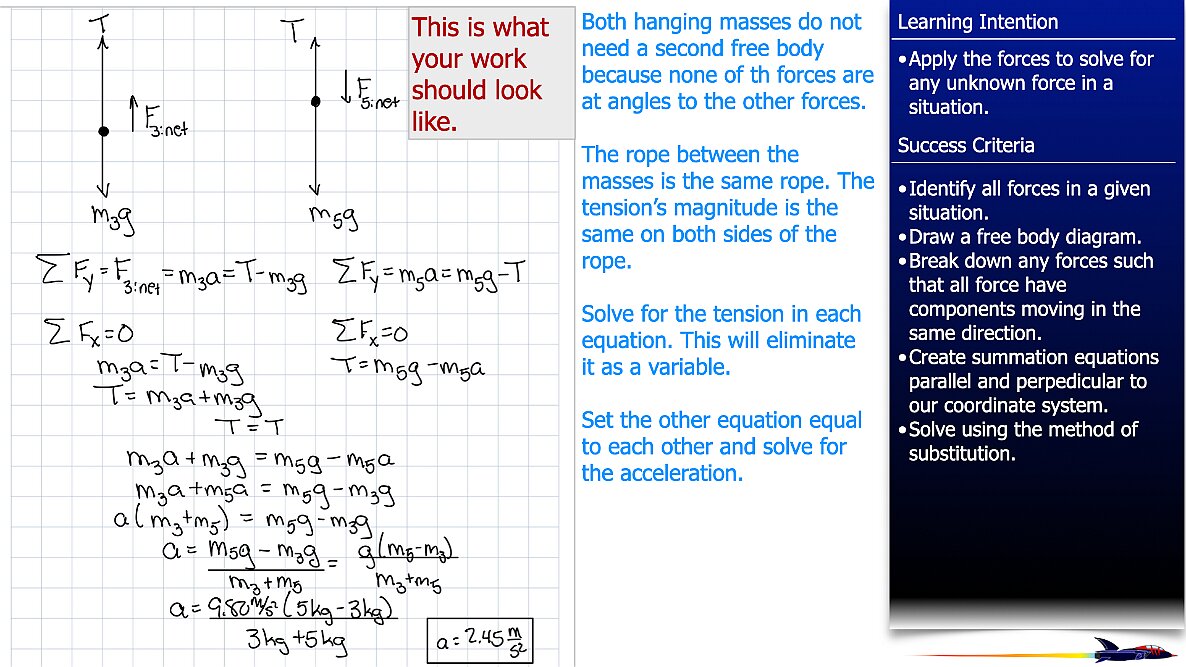 T
F3:net
m3g
T
F5:net
m5g
ΣFy = F3:net = m3a = T - m3g
ΣFx = 0
m3a = T - m3g
T = m3a + m3g
ΣFy = m5a = m5g - T
ΣFx = 0
T = m5g - m5a
T = T
m3a + m3g = m5g - m5a
m3a + m5a = m5g - m3g
a(m3 + m5) = m5g - m3g
a = m5g - m3g / m3 + m5 = g(m5 - m3) / m3 + m5
a = 9.80 m/s² (5kg - 3kg) / 3kg + 5kg
a = 2.45 m/s²
This is what
your work
should look
like.
Both hanging masses do not
need a second free body
because none of th forces are
at angles to the other forces.
The rope between the
masses is the same rope. The
tension’s magnitude is the
same on both sides of the
rope.
Solve for the tension in each
equation. This will eliminate
it as a variable.
Set the other equation equal
to each other and solve for
the acceleration.
Learning Intention
•Apply the forces to solve for
any unknown force in a
situation.
Success Criteria
•Identify all forces in a given
situation.
•Draw a free body diagram.
•Break down any forces such
that all force have
components moving in the
same direction.
•Create summation equations
parallel and perpedicular to
our coordinate system.
•Solve using the method of
substitution.